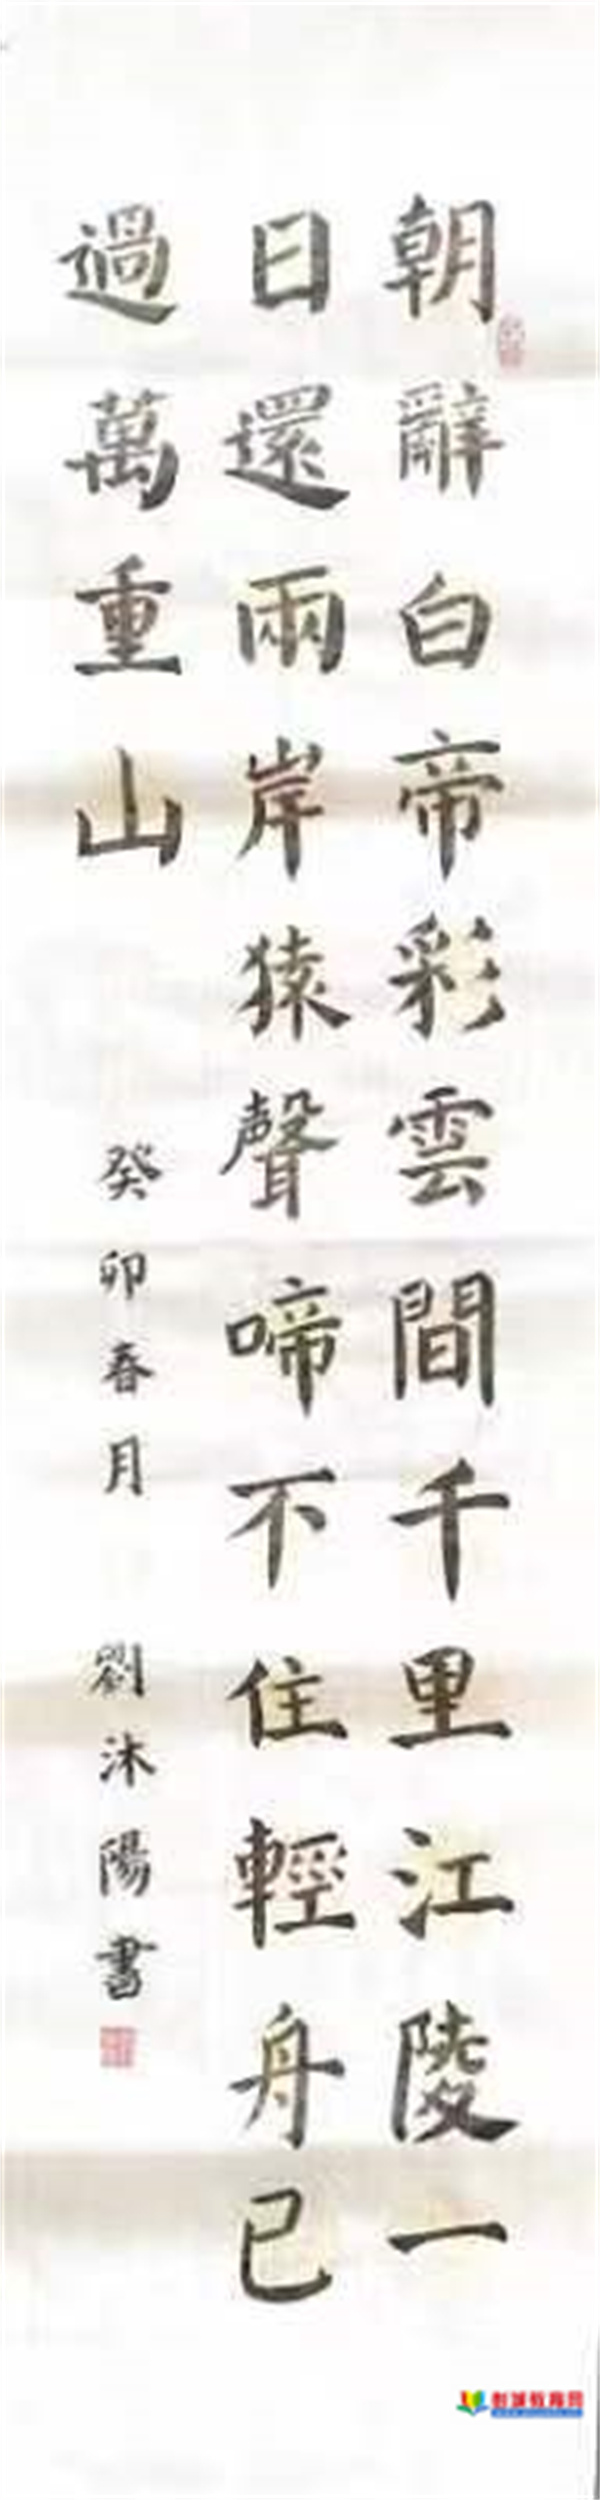 朝辭白帝彩雲間千里江陵一
日還兩岸猿聲啼不住輕舟已
過萬重山
癸卯春月 劉沐陽書